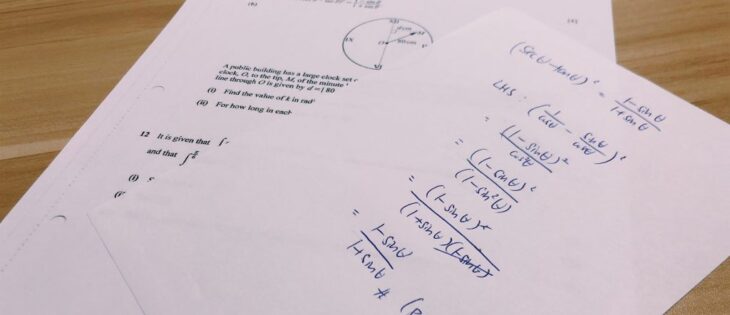 (b)
XII
d cm
M
80cm
O
P
IX
VI
A public building has a large clock set
clock, O, to the tip, M, of the minute
line through O is given by d = | 80
(i) Find the value of k in rad
(ii) For how long in each
12 It is given that ∫
and that ∫
(i)
(secθ - tanθ)² = 1-sinθ / 1+sinθ
LHS: (1/cosθ - sinθ/cosθ)²
= (1-sinθ)² / cos²θ
= (1-sinθ)² / (1-sin²θ)
= (1-sinθ)² / (1+sinθ)(1-sinθ)
= 1-sinθ / 1+sinθ #